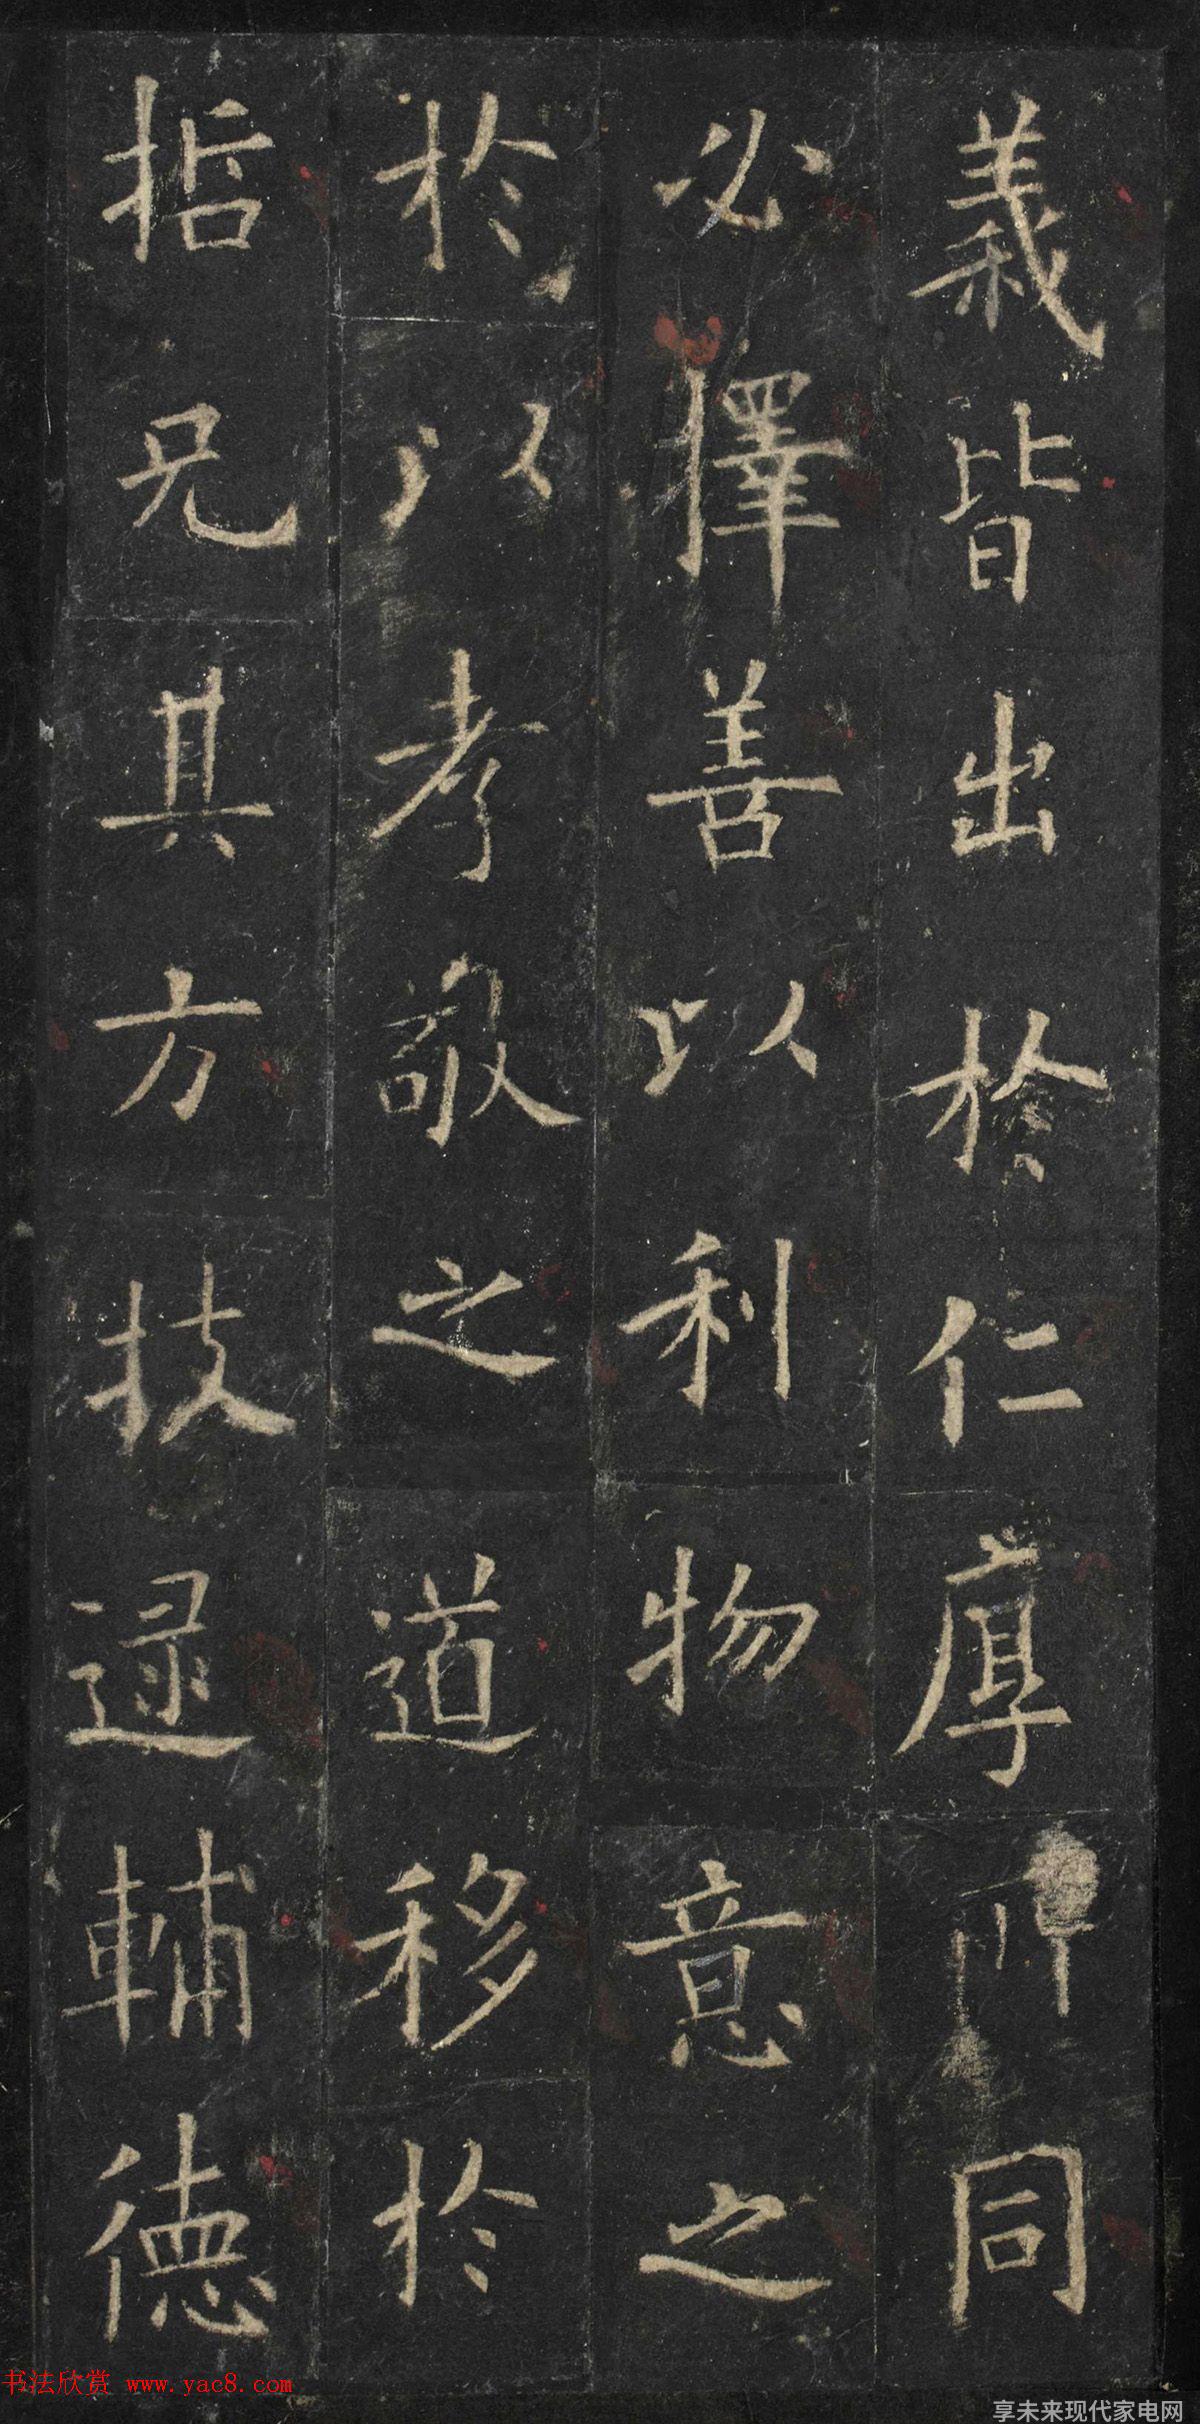 義皆出於仁厚所同
必擇善以利物意之
於以孝敬之道移於
哲兄其方技逯輔德
书法欣赏 www.yac8.com
享未来现代家电网